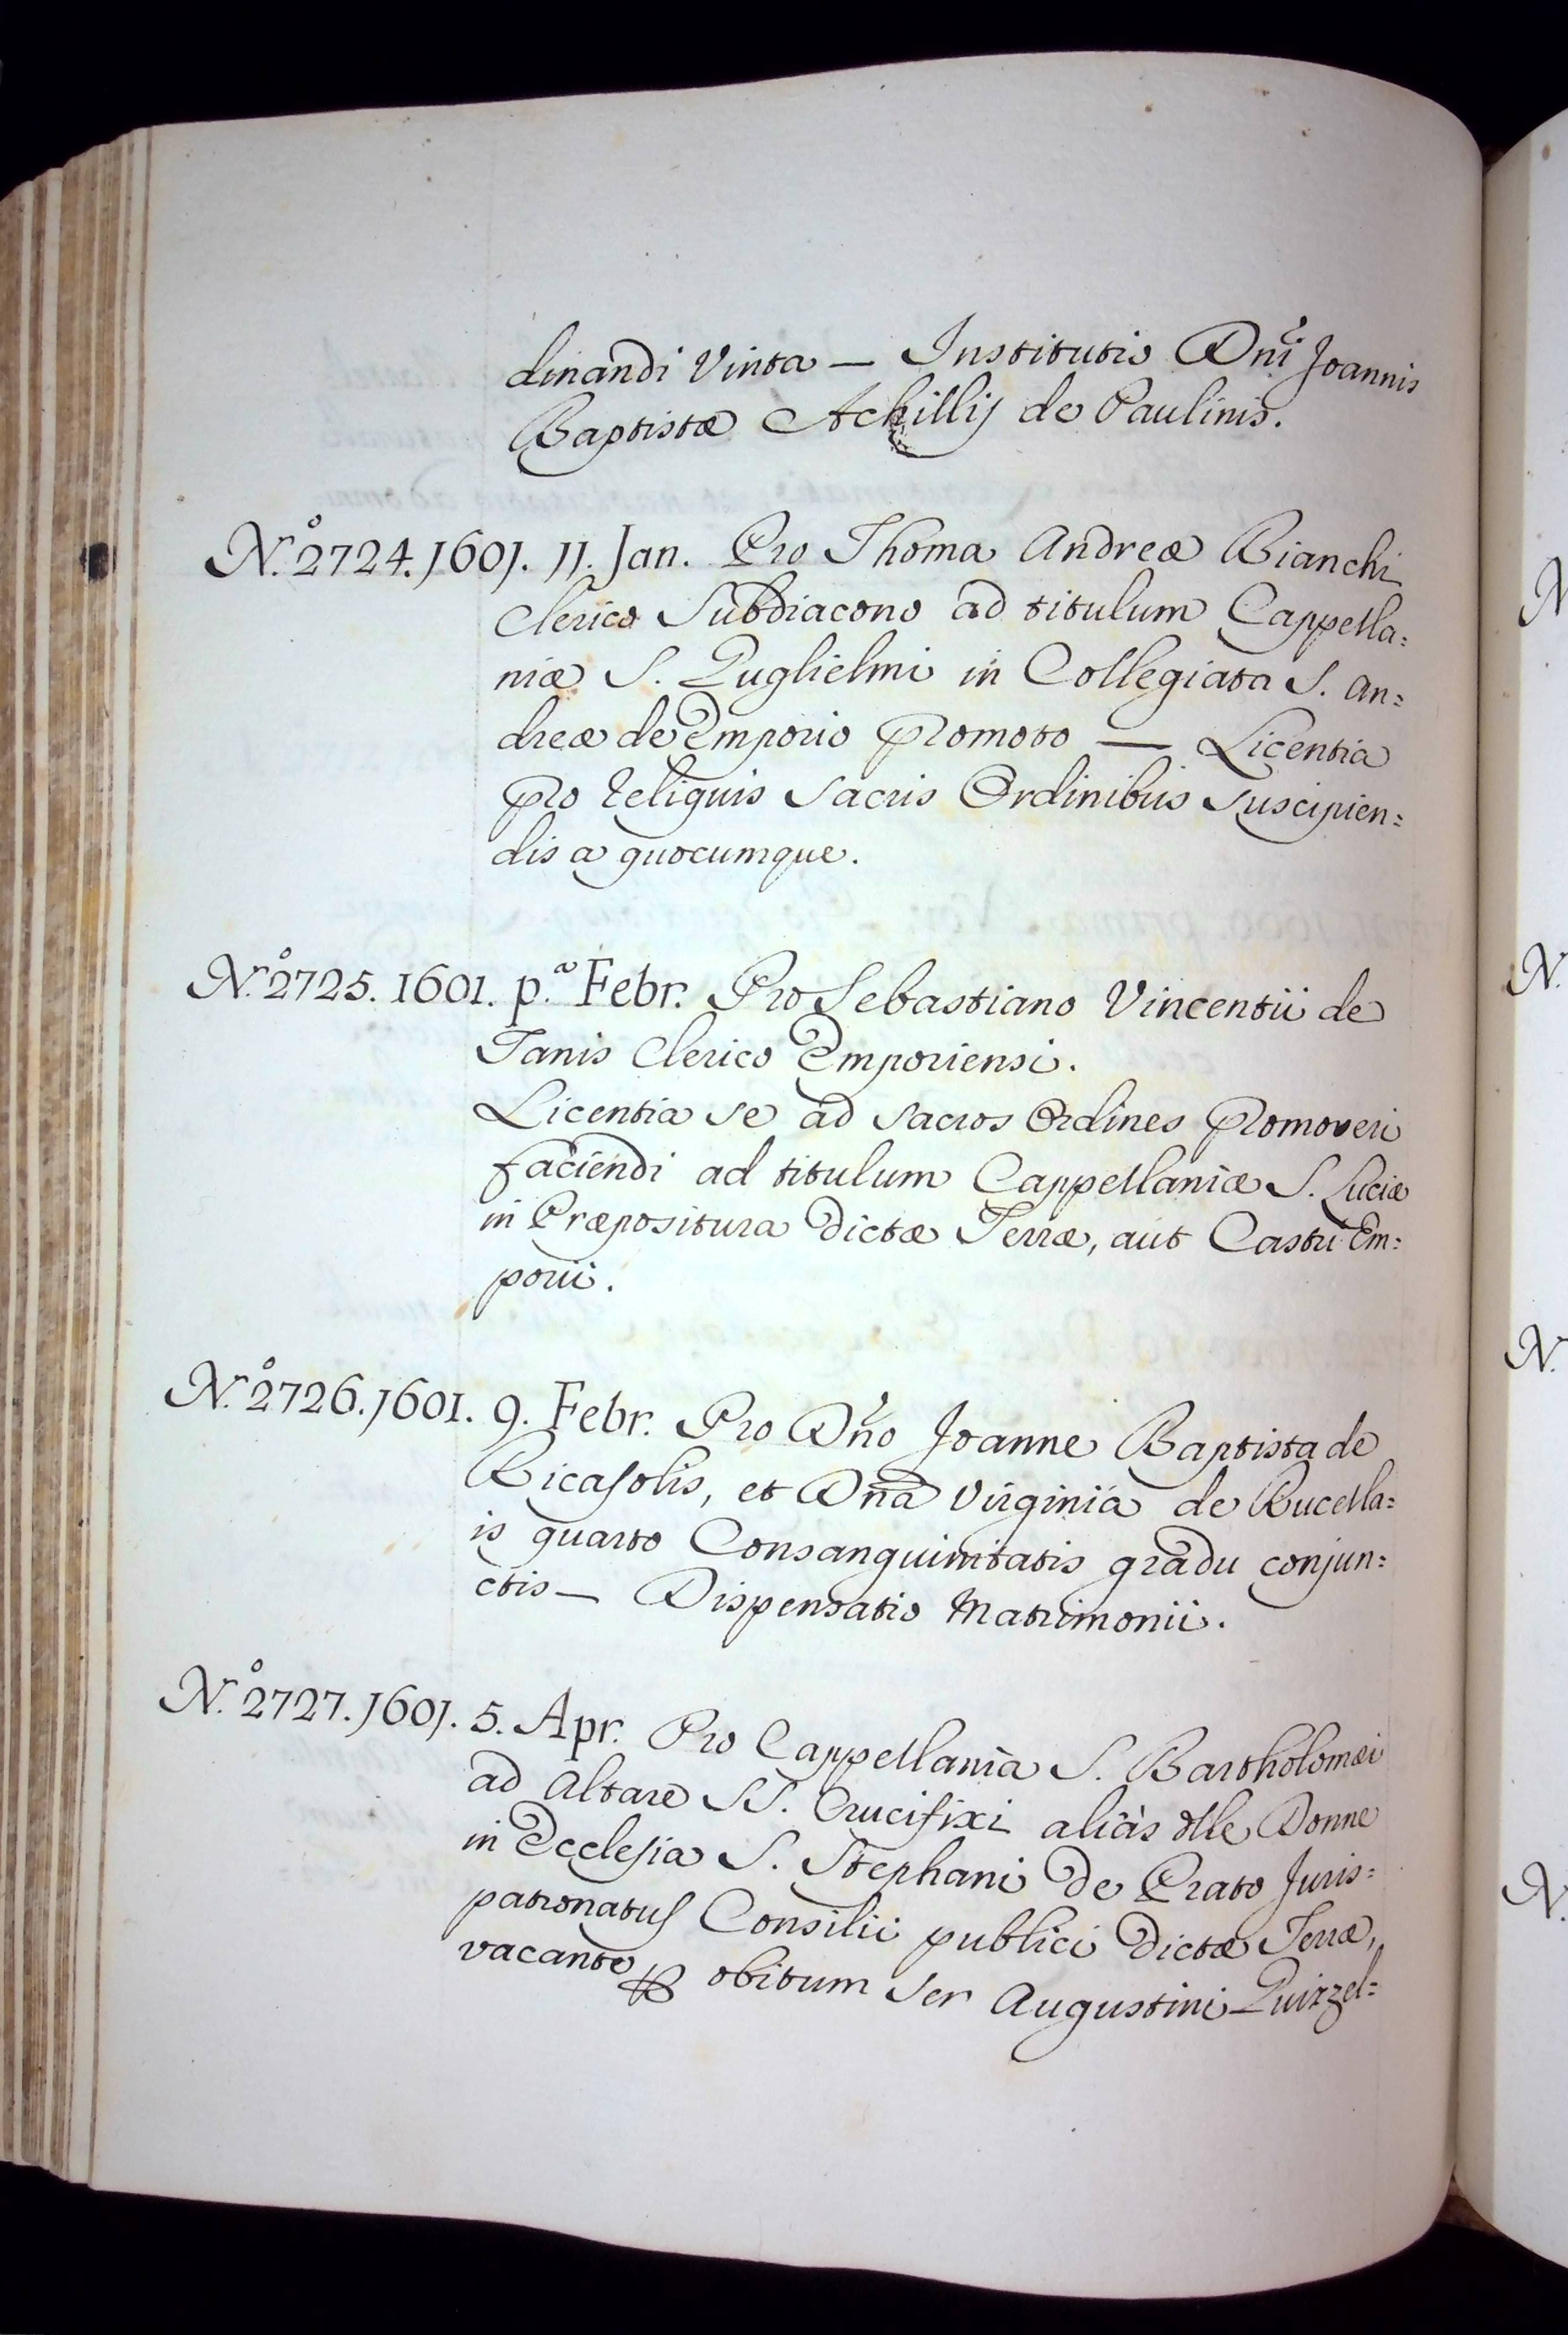 dinandi Vinta — Institutio Dni Joannis
Baptistæ Achillij de Paulinis.
N.º 2724. 1601. 11. Jan. Pro Thoma Andreæ Bianchi
Clerico Subdiacono ad titulum Cappella=
niæ S. Guglielmi in Collegiata S. An=
dreæ de Emporio promoto — Licentia
pro reliquis Sacris Ordinibus suscipien=
dis a quocumque.
N.º 2725. 1601. p.ª Febr. Pro Sebastiano Vincentii de
Tanis Clerico Emporiensi.
Licentia se ad sacros Ordines promoveri
faciendi ad titulum Cappellaniæ S. Luciæ
in Præpositura dictæ Terræ, aut Castri Em=
porii.
N.º 2726. 1601. 9. Febr. Pro Dño Joanne Baptista de
Ricasolis, et Dña Virginia de Rucella=
is quarto Consanguinitatis gradu conjun=
ctis — Dispensatio Matrimonii.
N.º 2727. 1601. 5. Apr. Pro Cappellania S. Bartholomæi
ad Altare SS. Crucifixi aliàs dlle Donne
in Ecclesia S. Stephani de Prato Juris=
patronatus Consilii publici dictæ Terræ,
vacante obitum Ser Augustini Guizzel=
N
N.
N.
N.